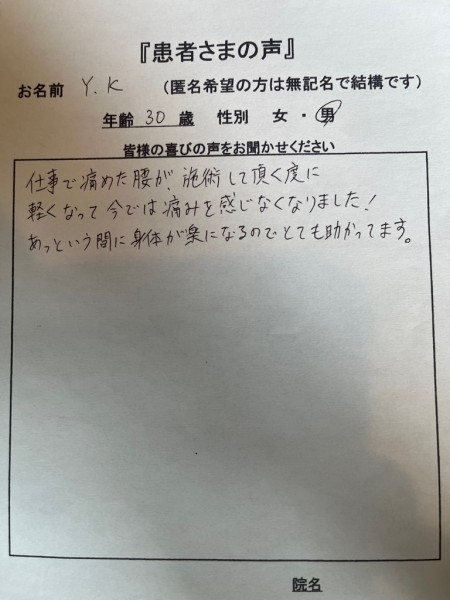 『患者さまの声』
お名前 Y.K （匿名希望の方は無記名で結構です）
年齢 30 歳 性別 女・男
皆様の喜びの声をお聞かせください
仕事で痛めた腰が、施術して頂く度に
軽くなって今では痛みを感じなくなりました！
あっという間に身体が楽になるのでとても助かってます。
院名